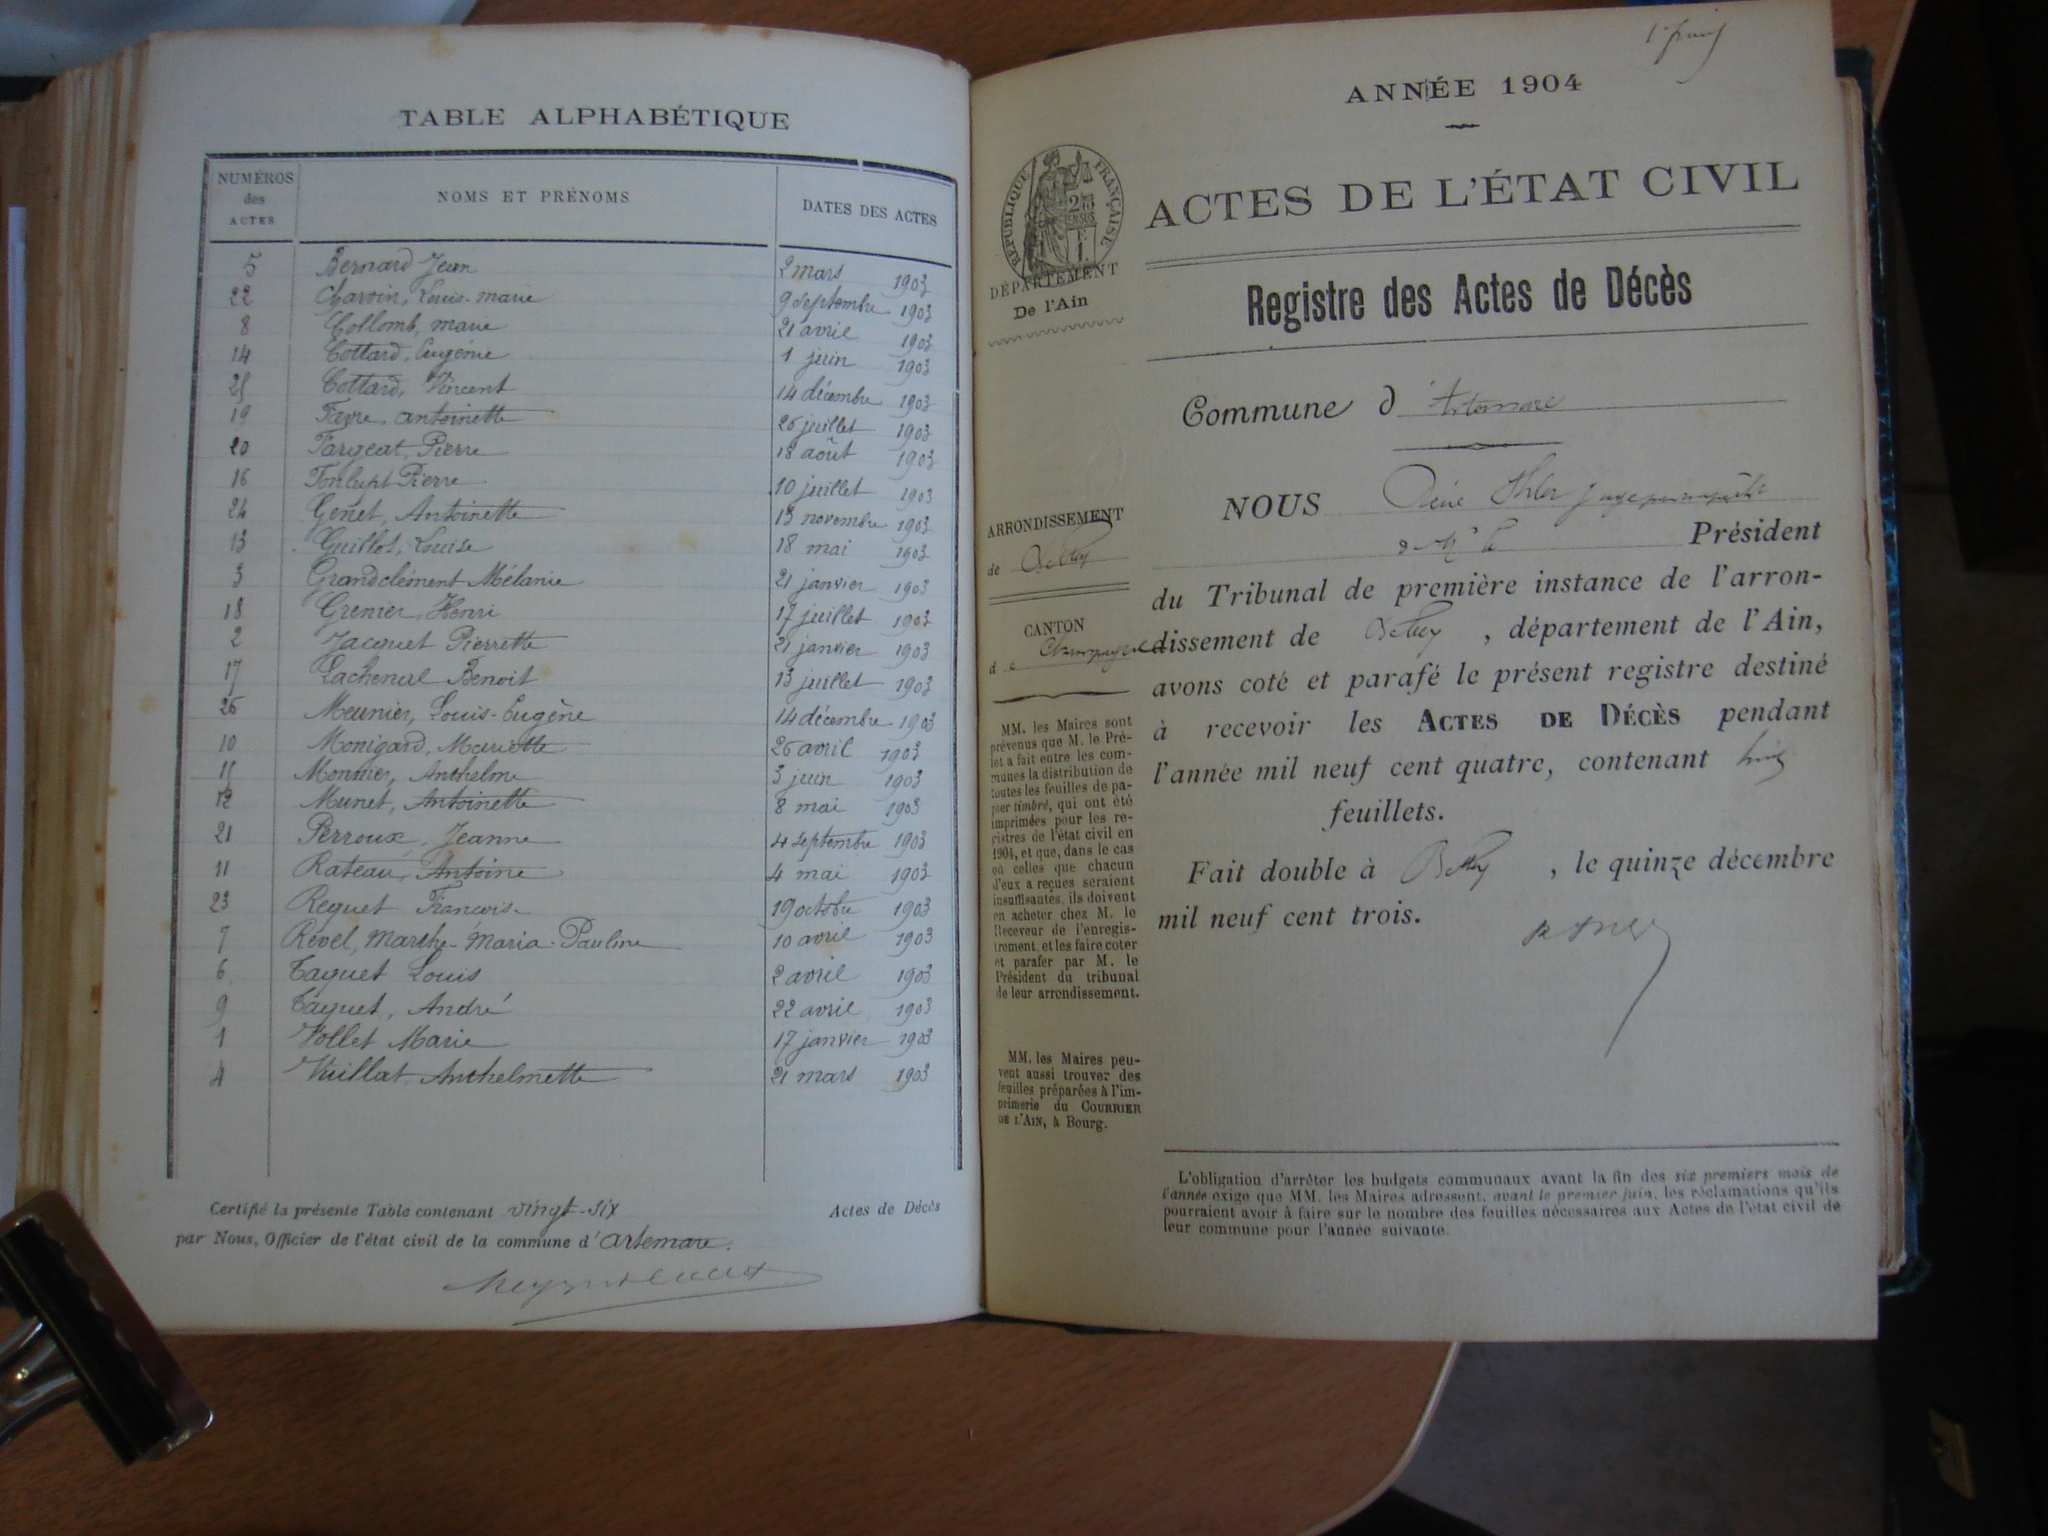 TABLE ALPHABÉTIQUE
NUMÉROS des ACTES NOMS ET PRÉNOMS DATES DES ACTES
5 Bernard Jean 2 mars 1903
22 Charvin, Louis-marie 9 septembre 1903
8 Collomb, marie 21 avril 1903
14 Cottard, Eugénie 1 juin 1903
25 Cottard, Vincent 14 décembre 1903
19 Favre, antoinette 26 juillet 1903
20 Fargeat, Pierre 18 août 1903
16 Fonlupt Pierre 10 juillet 1903
24 Genet, Antoinette 13 novembre 1903
13 Guillot, Louise 18 mai 1903
3 Grandclément Mélanie 21 janvier 1903
18 Grenier, Henri 17 juillet 1903
2 Jacquet Pierrette 21 janvier 1903
17 Lachenal Benoit 13 juillet 1903
26 Meunier, Louis-Eugène 14 décembre 1903
10 Monigard, Mariette 26 avril 1903
15 Monnier, Anthelme 3 juin 1903
12 Munet, Antoinette 8 mai 1903
21 Perroux, Jeanne 4 septembre 1903
11 Rateau, Antoine 4 mai 1903
23 Reguet François 19 octobre 1903
7 Revel, Marthe-Maria-Pauline 10 avril 1903
6 Taguet Louis 2 avril 1903
9 Taguet, André 22 avril 1903
1 Vollet Marie 17 janvier 1903
4 Vuillat Anthelmette 21 mars 1903
Certifié la présente Table contenant vingt-six Actes de Décès
par Nous, Officier de l'état civil de la commune d'Artemare.
ANNÉE 1904
RÉPUBLIQUE FRANÇAISE
ACTES DE L'ÉTAT CIVIL
DÉPARTEMENT
De l'Ain
Registre des Actes de Décès
Commune d'Artemare
NOUS
Président
du Tribunal de première instance de l'arron-
dissement de Belley, département de l'Ain,
avons coté et parafé le présent registre destiné
à recevoir les ACTES DE DÉCÈS pendant
l'année mil neuf cent quatre, contenant
feuillets.
Fait double à Belley, le quinze décembre
mil neuf cent trois.
ARRONDISSEMENT
de Belley
CANTON
de Champagne
MM. les Maires sont
prévenus que M. le Pré-
fet a fait entre les com-
munes la distribution de
toutes les feuilles de pa-
pier timbré, qui ont été
imprimées pour les re-
gistres de l'état civil en
1904, et que, dans le cas
où celles que chacun
d'eux a reçues seraient
insuffisantes, ils doivent
en acheter chez M. le
Receveur de l'enregis-
trement, et les faire coter
et parafer par M. le
Président du tribunal
de leur arrondissement.
MM. les Maires peu-
vent aussi trouver des
feuilles préparées à l'im-
primerie du COURRIER
DE L'AIN, à Bourg.
L'obligation d'arrêter les budgets communaux avant la fin des six premiers mois de
l'année exige que MM. les Maires adressent, avant le premier juin, les réclamations qu'ils
pourraient avoir à faire sur le nombre des feuilles nécessaires aux Actes de l'état civil de
leur commune pour l'année suivante.